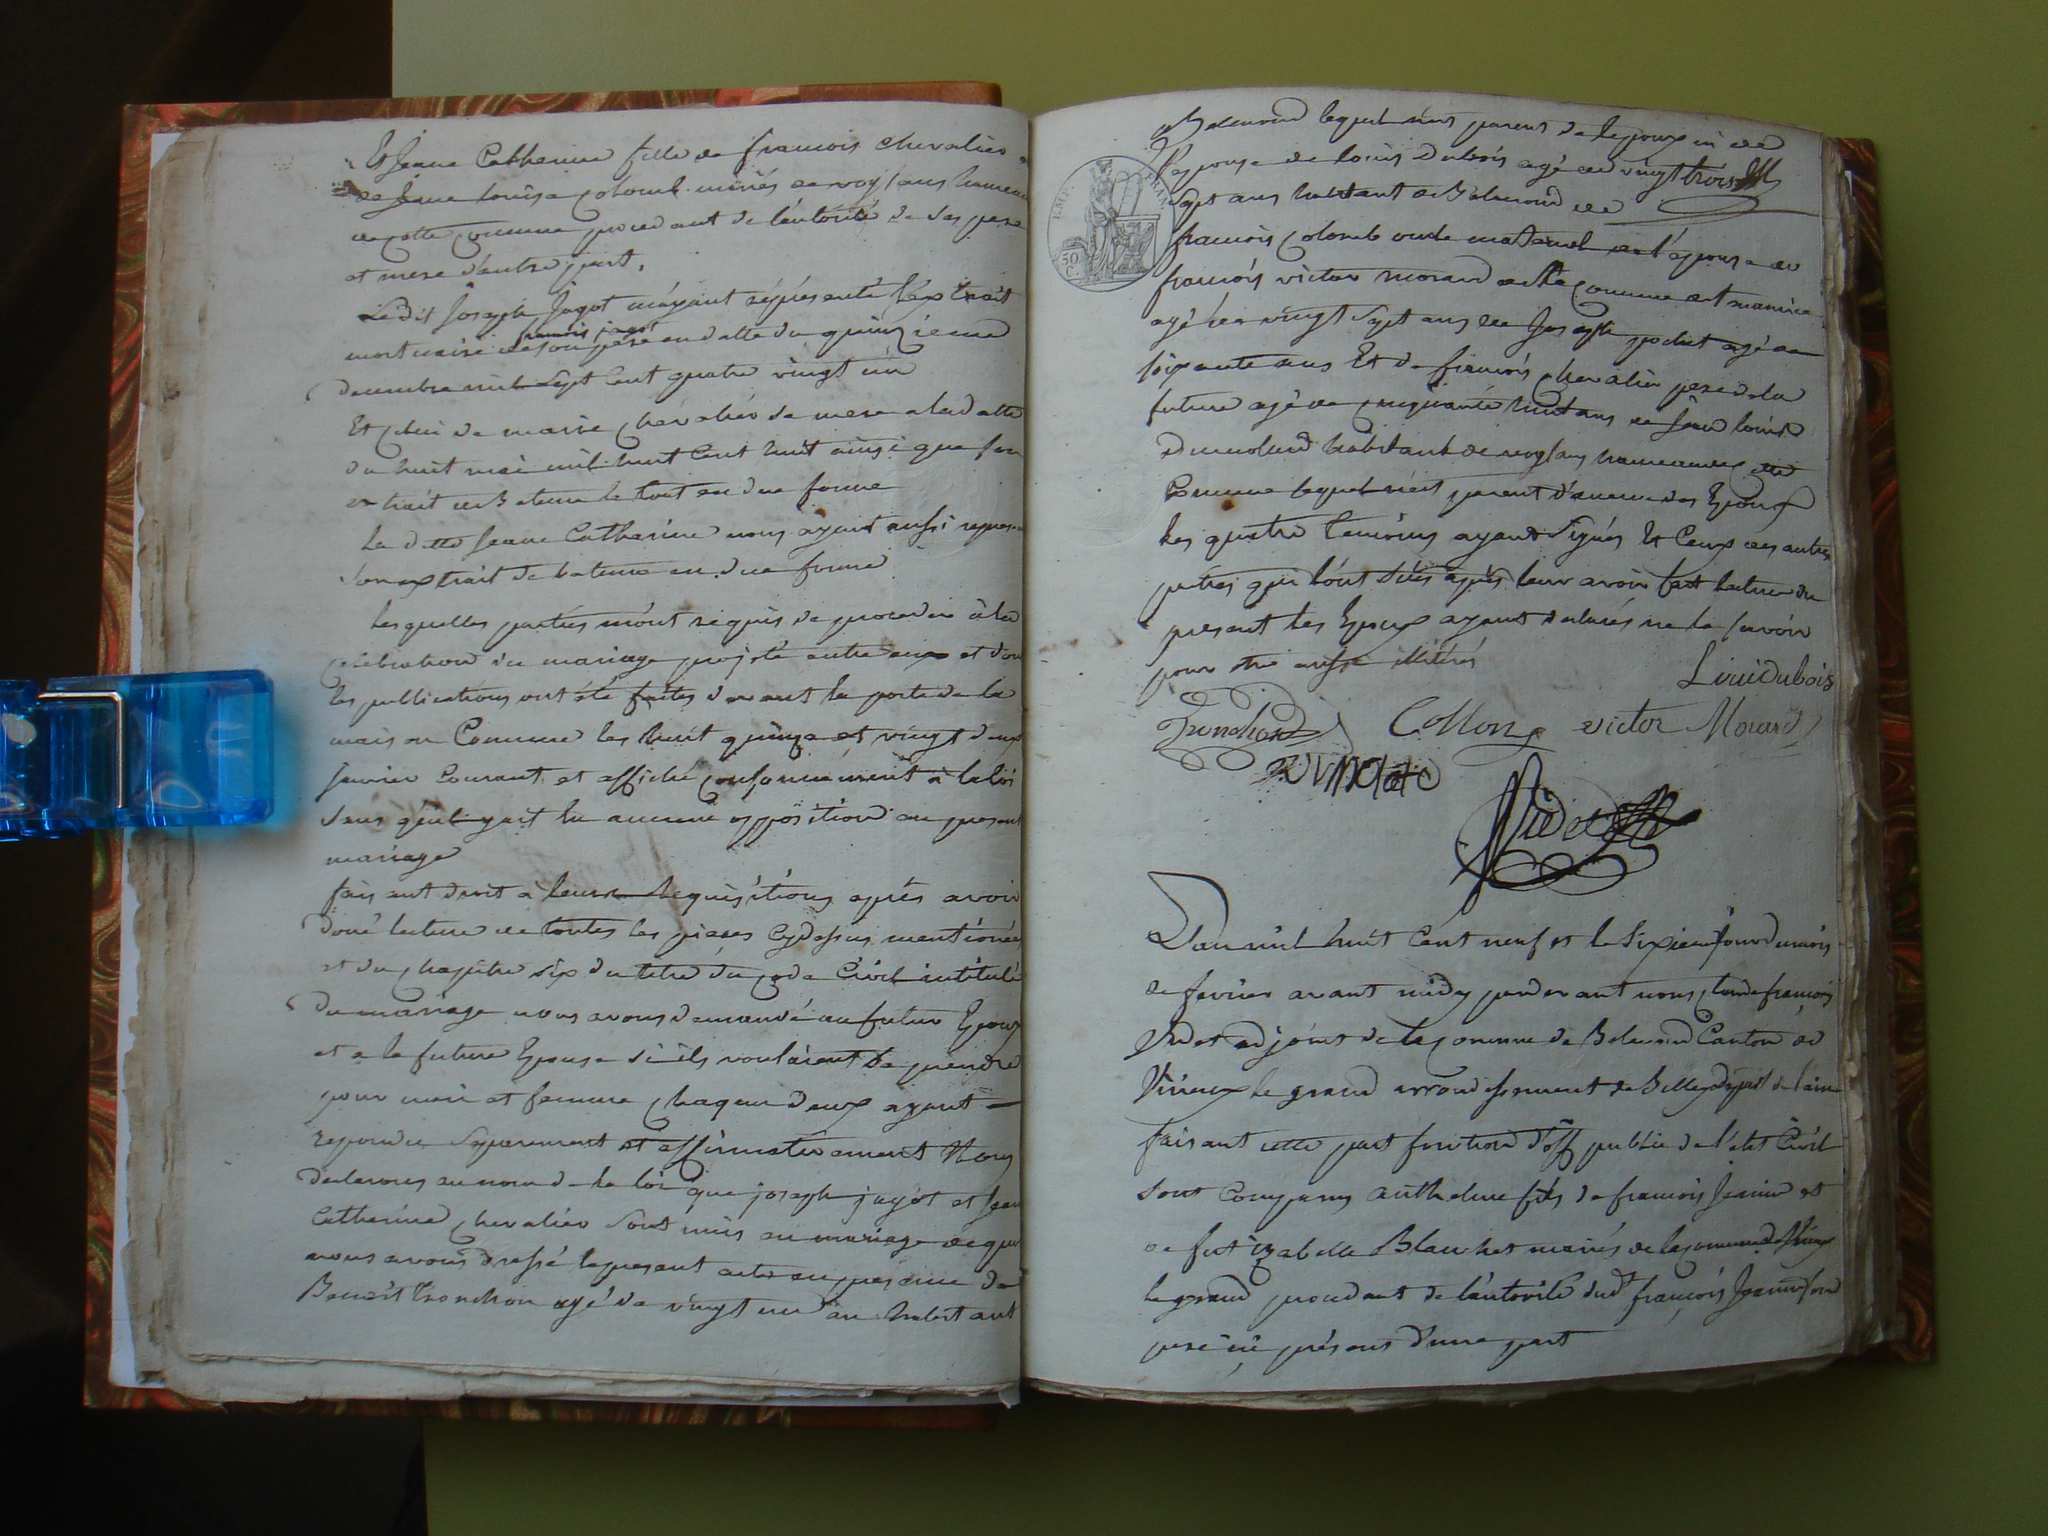 Et Jeane Catherine fille de francois chevalier
de Jeane louise colomb mariés de hameau
de cette commune procedant de l'autorité de ses pere
et mere d'autre part,
Ledit Joseph Jagot m'ayant représenté l'extrait
francois jagot
mortuaire de son pere en datte du quinzieme
decembre mil sept cent quatre vingt un
Et celui de marie chevalier sa mere a la datte
du huit mai mil huit cent huit ainsi que son
extrait de Bateme le tout en due forme
La dette Jeane Catherine nous ayant aussi represen
son extrait de bateme en due forme
Les quelles parties m'ont requis de proceder à la
celebration du mariage projeté entre eux et dont
les publications ont été faites devant la porte de la
maison Commune les huit quinze et vingt deux
janvier Courant et affiché conformément à la loi
sans qu'il y ait eu aucune opposition au present
mariage
faisant droit à leurs Requisitions après avoir
doné lecture de toutes les pieces cydessus mentionées
et du chapitre six du titre du code Civil intitulé
du mariage nous avons demandé au futur Epoux
et a la future Epouse si ils voulaient se prendre
pour mari et femme chaqun d'eux ayant
repondu separement et affirmativement Nous
declarons au nom de la loi que joseph jagot et Jean
Catherine chevalier sont unis en mariage de quoi
nous avons dressé le present acte en presence de
Benoit tronchon agé de vingt un an habitant
lequel n'est parent de l'epoux ni de
l'epouse de louis Dubois agé de vingt trois
sept ans habitant de
francois colomb oncle maternel de l'epouse de
francois victor morand de cette commune
agé de vingt sept ans de Joseph agé de
soixante ans Et de francois chevalier pere de la
future agé de cinquante huit ans de Jean louis
habitant de hameau de cette
Commune lequel n'est parent d'aucun des Epoux
Les quatre temoins ayant signés Et Ceux des autres
parties qui l'ont sus après leur avoir fait lecture du
present les Epoux ayant declarés ne le savoir
pour etre aussi illitérés
EMP. FRAN.
50 C.
Louis Dubois
Tronchon Collon victor Morand
Videt
L'an mil huit cent neuf et le sixieme jour du mois
de fevrier avant midy pardevant nous Claude francois
Videt adjoint de la comune de Belmond Canton de
Virieux le grand arrondissement de Belley depart de l'ain
faisant cette part fonction d'off public de l'etat Civil
sont Comparus anthelme fils de francois Jeanin et
de fut izabelle Blanchet mariés de la comune de Virieux
le grand procedant de l'autorité dud francois Jeanin son
pere ici présens d'une part